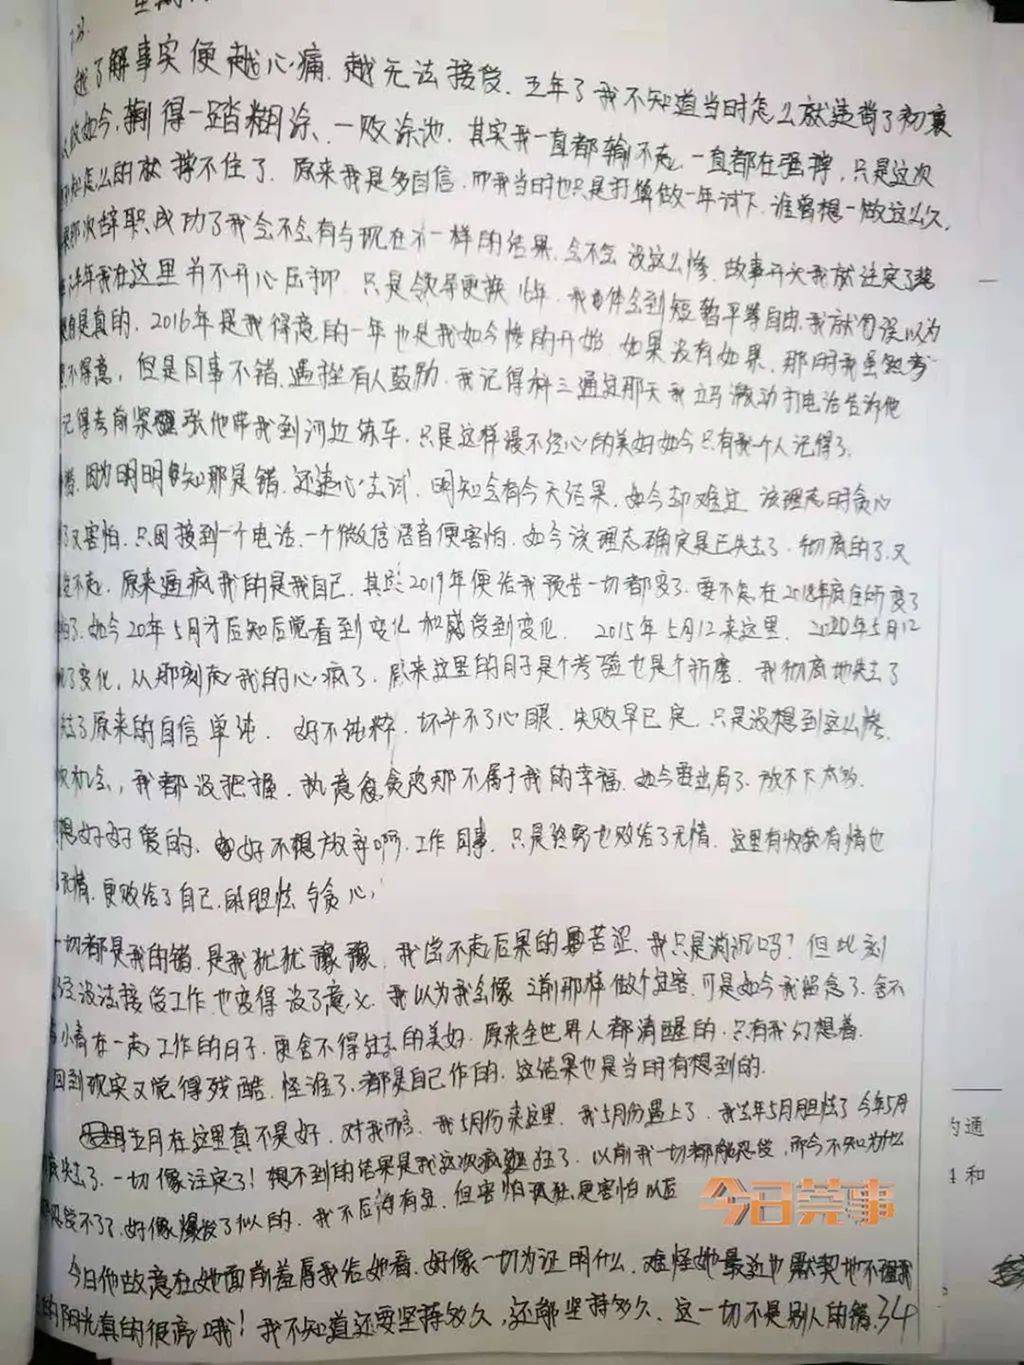 7.23.
越了解事实便越心痛,越无法接受.五年了我不知道当时怎么就违背了初衷
如今,输得一踏糊涂、一败涂地.其实我一直都输不起,一直都在强撑,只是这次
怎么的就撑不住了.原来我是多自信,而我当时也只是打算做一年试下.谁曾想一做这么久,
那次辞职成功了我会不会有与现在不一样的结果.会不会没这么惨.故事开头我就注定了
年我在这里并不开心压抑.只是领导更换16年.我体会到短暂平等自由.我就误以为
是真的.2016年是我得意的一年也是我如今惨的开始.如果没有如果.那时我虽然
不得意,但是同事不错.遇挫有人鼓励.我记得科三通过那天我立马激动打电话告诉他
记得考前紧张他带我到河边练车.只是这样漫不经心的美好如今只有我一个人记得了.
因为明明知那是错.还违心去试.明知会有今天结果.如今却难过.该理志时贪心
了又害怕.只因接到一个电话.一个微信语音便害怕.如今该理志确定是已失去了.彻底的了.又
不起.原来逼疯我的是我自己.其实2019年便给我预告一切都变了.要不怎在2018年度
了.如今20年5月才后知后觉看到变化和感受到变化. 2015年5月12来这里. 2020年5月12
了变化,从那刻起我的心疯了.原来这里的日子是个考验也是个折磨.我彻底地失去了
去了原来的自信单纯. 好不纯粹.坏斗不了心眼.失败早已定.只是没想到这么惨.
次机会,我都没把握.执意贪恋那不属于我的幸福.如今要出局了.放不下
想好好爱的.好不想放弃啊.工作同事.只是终究也败给了无情.这里有收获有情也
无情.更败给了自己.的胆怯与贪心,
一切都是我的错.是我犹犹豫豫.我尝不起后果的苦涩.我只是消沉吗?但此刻
没法接受工作也变得没了意义.我以为我会像之前那样做个过客.可是如今我留念了.舍不
小青在一起工作的日子.更舍不得过去的美好.原来全世界人都清醒的.只有我幻想着.
回到现实又觉得残酷.怪谁了.都是自己作的.这结果也是当时有想到的.
五月在这里真不是好.对我而言.我5月份来这里.我5月份遇上了.我去年5月胆怯了今年5月
失去了.一切像注定了!想不到的结果是我这次疯狂了.以前我一切都能忍受,而今不知为什么
忍受不了了.好像爆发了似的.我不后悔有过.但害怕孤独.更害怕以后
今日莞事
今日他故意在她面前羞辱我给她看.好像一切为证明什么.难怪她最近也默契地不理我
的阳光真的很高哦!我不知道还要坚持多久,还能坚持多久.这一切不是别人的错.34
的通
和